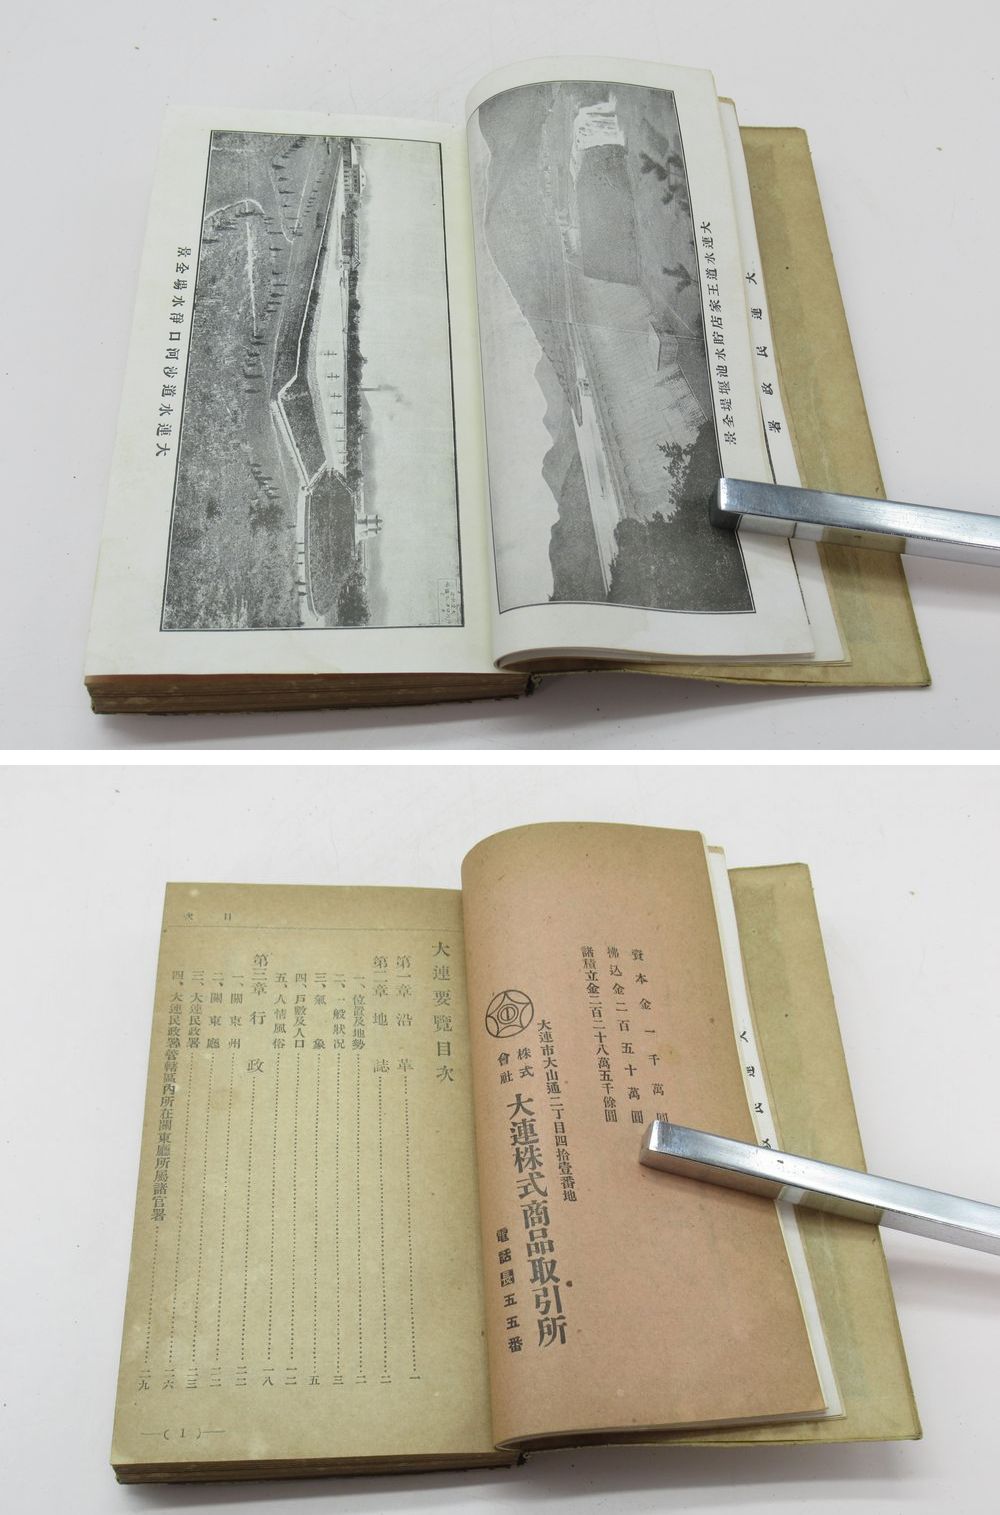 大連民政署
大連水道王家店貯水池堰堤全景
大連水道沙河口淨水場全景
資本金一千萬圓
拂込金二百五十萬圓
諸積立金二百二十八萬五千餘圓
大連市大山通二丁目四拾壹番地
株式會社 大連株式商品取引所
電話長五五番
目次
大連要覽目次
第一章 沿革 一
第二章 地誌 二
一、位置及地勢 二
二、一般狀況 三
三、氣象 五
四、戶數及人口 一二
五、人情風俗 一八
第三章 行政 二二
一、關東州 二二
二、關東廳 二二
三、大連民政署 二三
四、大連民政署管轄區內所在關東廳所屬諸官署 二九
—( 1 )—